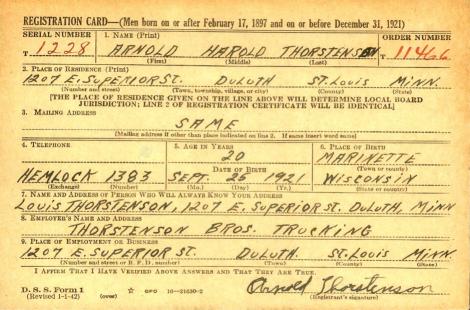 REGISTRATION CARD—(Men born on or after February 17, 1897 and on or before December 31, 1921)
SERIAL NUMBER 1. NAME (Print) ORDER NUMBER
T 1228 ARNOLD HAROLD THORSTENSON T 11466
(First) (Middle) (Last)
2. PLACE OF RESIDENCE (Print)
1207 E. SUPERIOR ST. DULUTH ST. LOUIS MINN.
(Number and street) (Town, township, village, or city) (County) (State)
[THE PLACE OF RESIDENCE GIVEN ON THE LINE ABOVE WILL DETERMINE LOCAL BOARD
JURISDICTION; LINE 2 OF REGISTRATION CERTIFICATE WILL BE IDENTICAL]
3. MAILING ADDRESS
SAME
[Mailing address if other than place indicated on line 2. If same insert word same]
4. TELEPHONE 5. AGE IN YEARS 6. PLACE OF BIRTH
20 MARINETTE
DATE OF BIRTH (Town or county)
HEMLOCK 1383 SEPT. 25 1921 WISCONSIN
(Exchange) (Number) (Mo.) (Day) (Yr.) (State or country)
7. NAME AND ADDRESS OF PERSON WHO WILL ALWAYS KNOW YOUR ADDRESS
LOUIS THORSTENSON, 1207 E. SUPERIOR ST. DULUTH, MINN
8. EMPLOYER'S NAME AND ADDRESS
THORSTENSON BROS. TRUCKING
9. PLACE OF EMPLOYMENT OR BUSINESS
1207 E. SUPERIOR ST. DULUTH. ST. LOUIS MINN.
(Number and street or R. F. D. number) (Town) (County) (State)
I AFFIRM THAT I HAVE VERIFIED ABOVE ANSWERS AND THAT THEY ARE TRUE.
D. S. S. Form 1 ☆ GPO 16—21630-2 Arnold Thorstenson
(Revised 1-1-42) (over) (Registrant's signature)